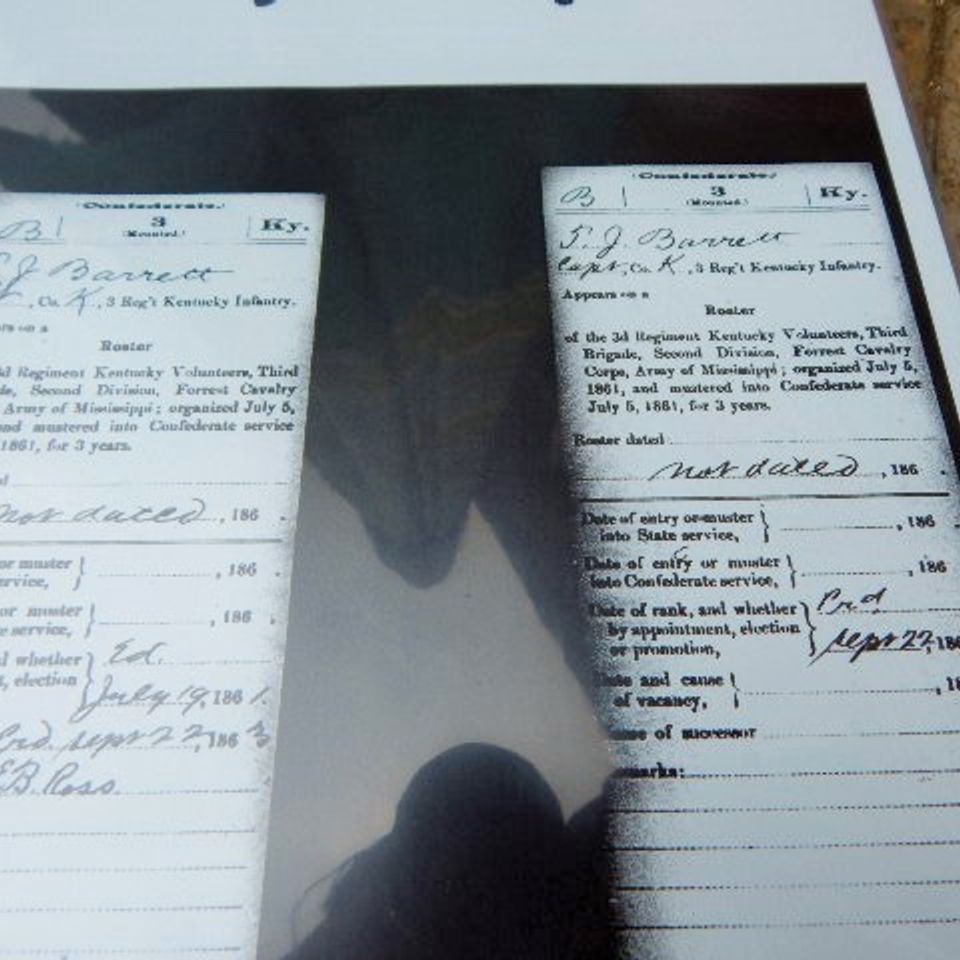 Confederate.
B
3
(Mounted.)
Ky.
J Barrett
, Co. K, 3 Reg't Kentucky Infantry.
on a
Roster
Regiment Kentucky Volunteers, Third
Second Division, Forrest Cavalry
Army of Mississippi; organized July 5,
mustered into Confederate service
1861, for 3 years.
not dated, 186 .
or muster
service, } , 186 .
or muster
service, } , 186 .
whether
, election } Ed.
July 19, 1861.
Prd. Sept 22, 1863
B. Ross
Confederate.
B
3
(Mounted.)
Ky.
J. Barrett
Capt, Co. K, 3 Reg't Kentucky Infantry.
Appears on a
Roster
of the 3d Regiment Kentucky Volunteers, Third
Brigade, Second Division, Forrest Cavalry
Corps, Army of Mississippi; organized July 5,
1861, and mustered into Confederate service
July 5, 1861, for 3 years.
Roster dated
not dated, 186 .
Date of entry or muster
into State service, } , 186
Date of entry or muster
into Confederate service, } , 186
Date of rank, and whether
by appointment, election
or promotion, } Prd
Sept 22, 186
and cause
of vacancy, } , 1
of successor